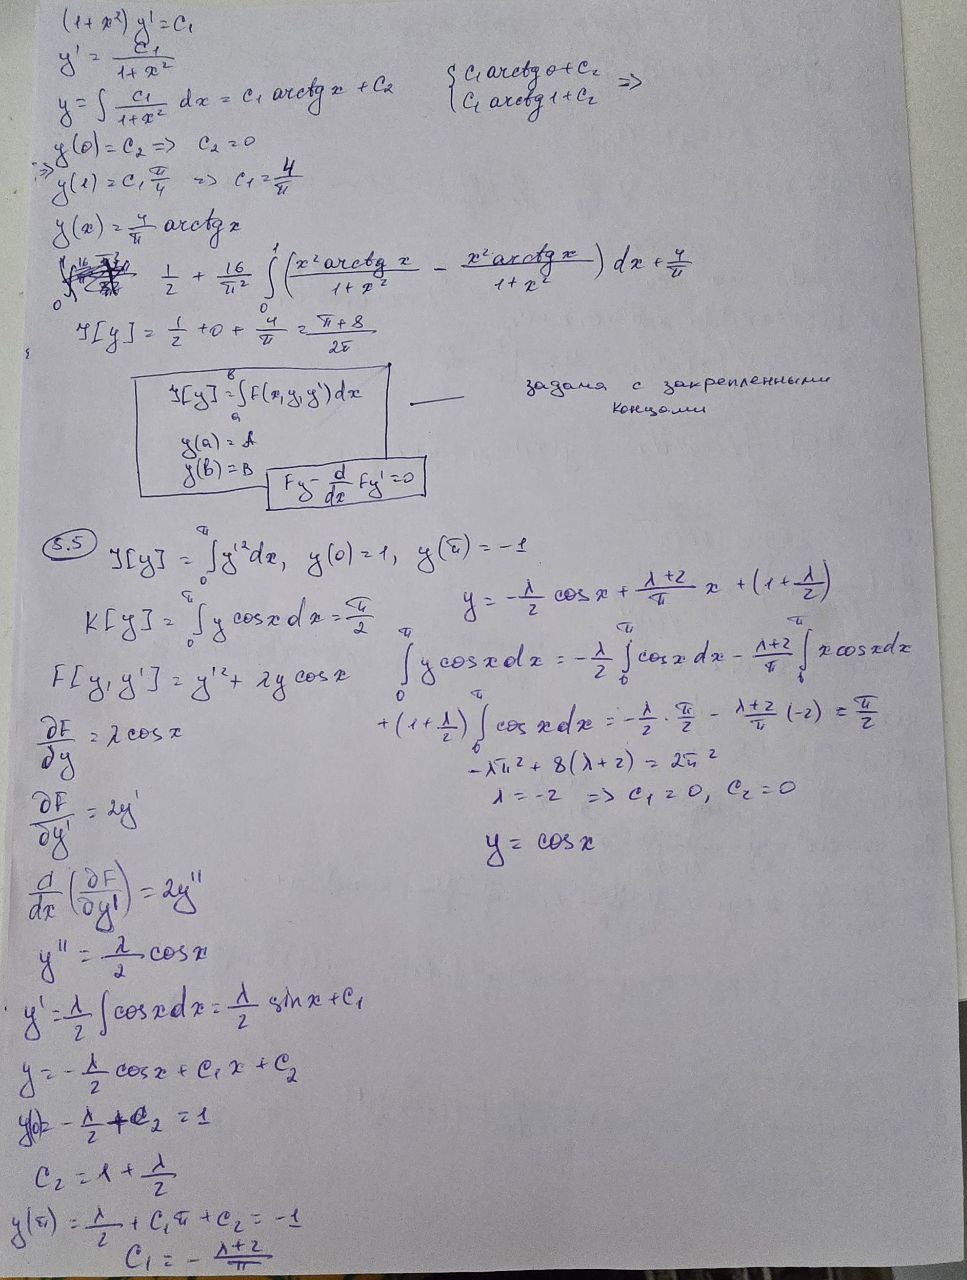 (1+x²) y' = C₁
y' = C₁/(1+x²)
y = ∫ C₁/(1+x²) dx = C₁ arctg x + C₂
{ C₁ arctg 0 + C₂
{ C₁ arctg 1 + C₂ =>
y(0) = C₂ => C₂ = 0
=> y(1) = C₁ π/4 => C₁ = 4/π
y(x) = 4/π arctg x
1/2 + 16/π² ∫₀¹ (x² arctg x/(1+x²) - x² arctg x/(1+x²)) dx + 4/π
J[y] = 1/2 + 0 + 4/π = (π+8)/2π
J[y] = ∫ₐᵇ F(x, y, y') dx
y(a) = A
y(b) = B
Fy - d/dx Fy' = 0
задача с закрепленными
концами
5.5
J[y] = ∫₀^π y'² dx, y(0) = 1, y(π) = -1
K[y] = ∫₀^π y cos x dx = π/2
F[y, y'] = y'² + λy cos x
∂F/∂y = λ cos x
∂F/∂y' = 2y'
d/dx (∂F/∂y') = 2y''
y'' = λ/2 cos x
y' = λ/2 ∫ cos x dx = λ/2 sin x + C₁
y = -λ/2 cos x + C₁x + C₂
y(0) = -λ/2 + C₂ = 1
C₂ = 1 + λ/2
y(π) = λ/2 + C₁π + C₂ = -1
C₁ = - (λ+2)/π
y = -λ/2 cos x + (λ+2)/π x + (1 + λ/2)
∫₀^π y cos x dx = -λ/2 ∫₀^π cos x dx - (λ+2)/π ∫₀^π x cos x dx
+ (1 + λ/2) ∫₀^π cos x dx = -λ/2 · π/2 - (λ+2)/π (-2) = π/2
-λπ² + 8(λ+2) = 2π²
λ = -2 => C₁ = 0, C₂ = 0
y = cos x